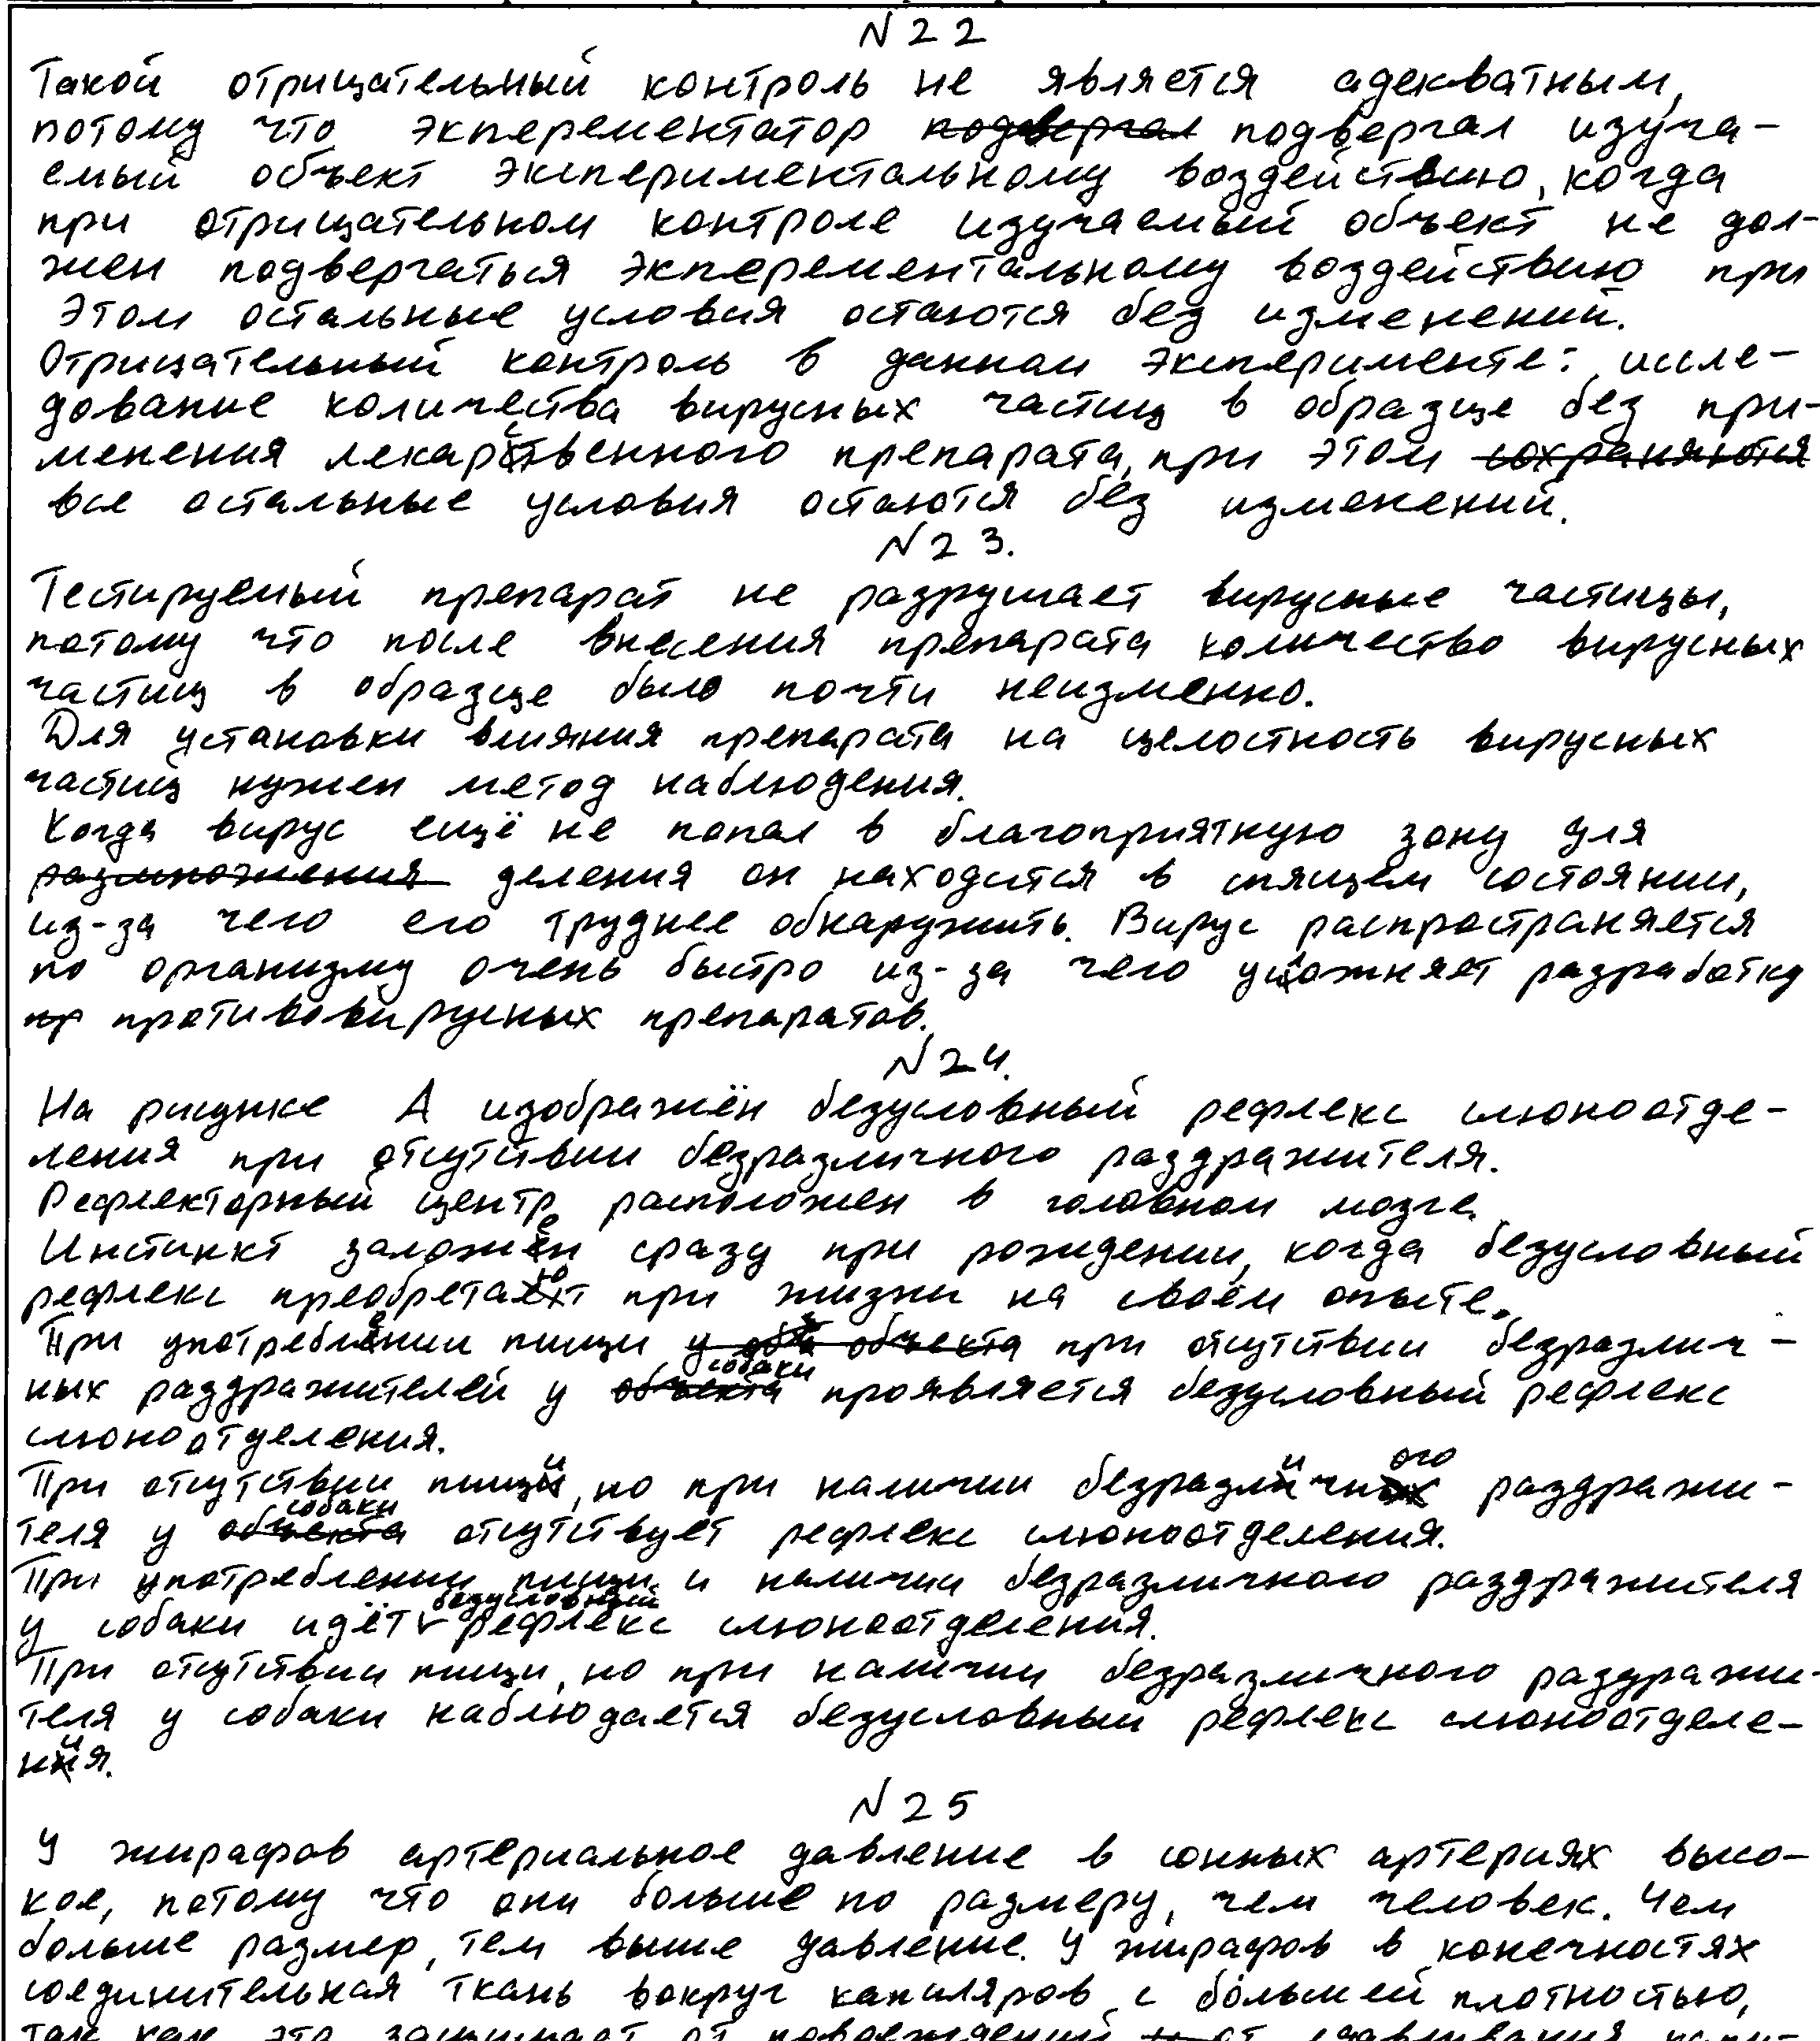 N 22
Такой отрицательный контроль не является адекватным,
потому что экперементатор подвергал подвергал изуча-
емый объект экспериментальному воздействию, когда
при отрицательном контроле изучаемый объект не дол-
жен подвергаться экперементальному воздействию при
этом остальные условия остаются без изменений.
Отрицательный контроль в данном эксперименте: иссле-
дование количества вирусных частиц в образце без при-
менения лекарственного препарата, при этом сохраняются
все остальные условия остаются без изменений.
N 23.
Тестируемый препарат не разрушает вирусные частицы,
потому что после внесения препарата количество вирусных
частиц в образце было почти неизменно.
Для установки влияния препарата на целостность вирусных
частиц нужен метод наблюдения.
Когда вирус ещё не попал в благоприятную зону для
размножения деления он находится в спящем состоянии,
из-за чего его труднее обнаружить. Вирус распространяется
по организму очень быстро из-за чего усложняет разработку
пр противовирусных препаратов.
N 24.
На рисунке А изображён безусловный рефлекс слюноотде-
ления при отсутствии безразличного раздражителя.
Рефлекторный центр расположен в головном мозге.
Инстинкт заложен сразу при рождении, когда безусловный
рефлекс преобретают при жизни на своём опыте.
При употреблении пищи у объекта при отсутствии безразлич-
ных раздражителей у объекта собаки проявляется безусловный рефлекс
слюноотделения.
При отсутствии пищи, но при наличии безразличного раздражи-
теля у объекта собаки отсутствует рефлекс слюноотделения.
При употреблении пищи и наличии безразличного раздражителя
у собаки идёт безусловный рефлекс слюноотделения.
При отсутствии пищи, но при наличии безразличного раздражи-
теля у собаки наблюдается безусловный рефлекс слюноотделе-
ния.
N 25
У жирафов артериальное давление в сонных артериях высо-
кое, потому что они больше по размеру, чем человек. Чем
больше размер, тем выше давление. У жирафов в конечностях
соединительная ткань вокруг капиляров с большей плотностью,
так как это защищает от повреждений от сдавливания